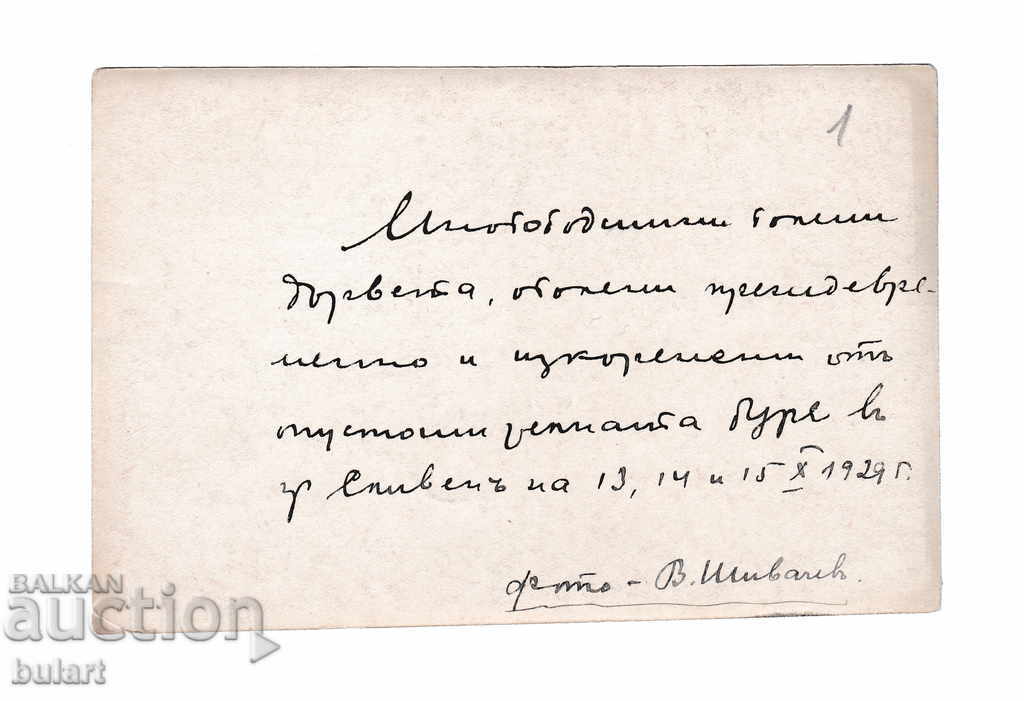 1
Многогодишни големи
дървета, оголени преждевре-
менно и изкоренени отъ
опустошителната буре въ
гр Сливенъ на 13, 14 и 15 X 1929 г.
фото - В. Шивачевъ.
BALKAN
auction
bulart